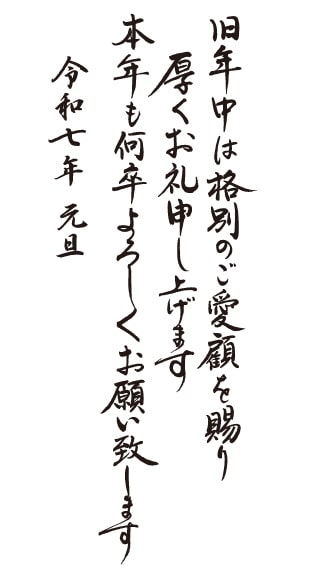 旧年中は格別のご愛顧を賜り
厚くお礼申し上げます
本年も何卒よろしくお願い致します
令和七年 元旦